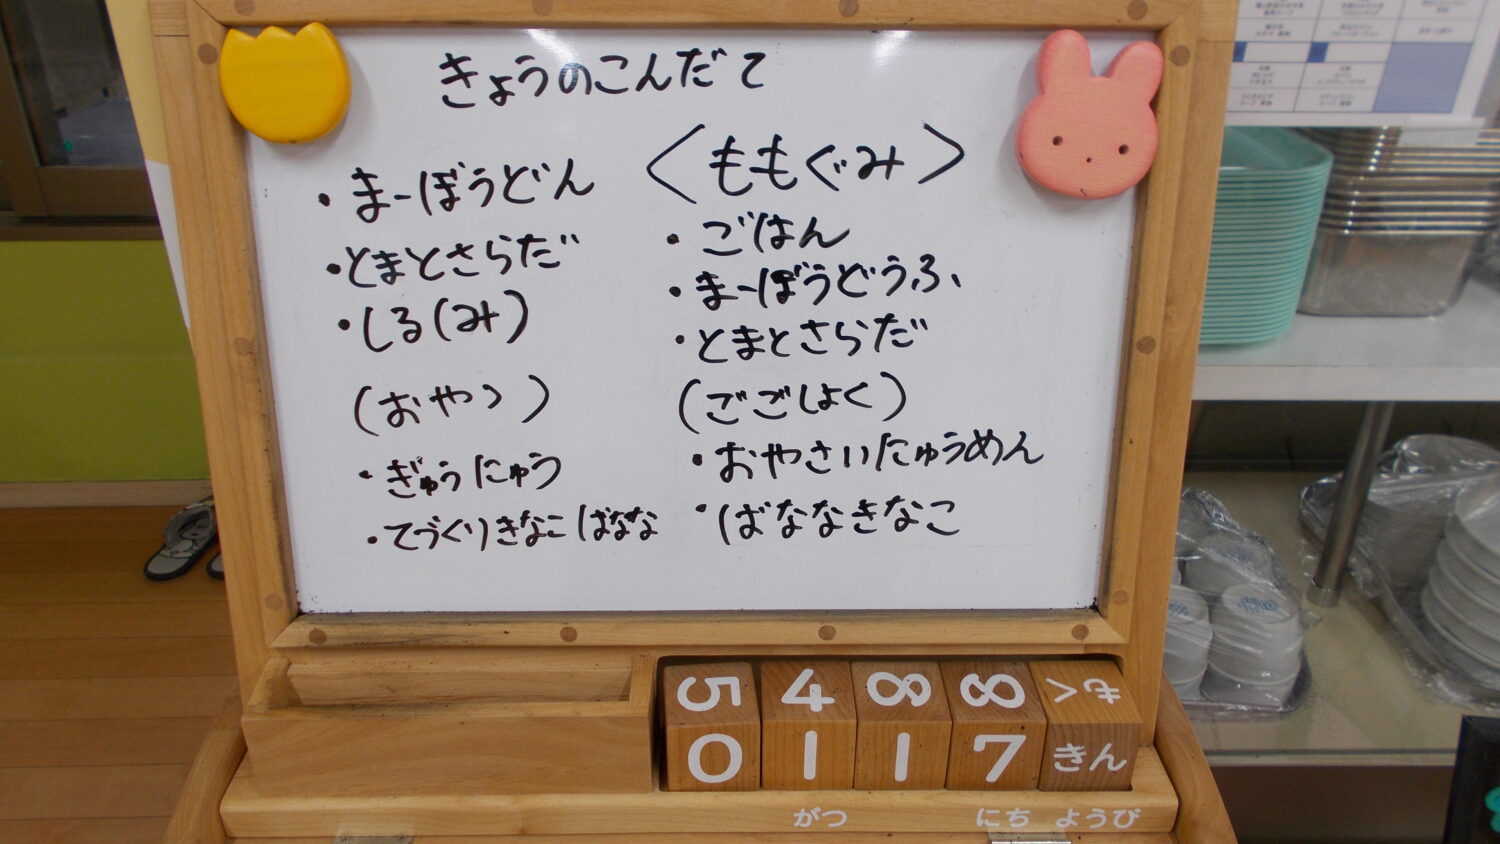 きょうのこんだて
・まーぼうどん
・とまとさらだ
・しる(み)
(おやつ)
・ぎゅうにゅう
・てづくりきなこばなな
<ももぐみ>
・ごはん
・まーぼうどうふ
・とまとさらだ
(ごごしょく)
・おやさいにゅうめん
・ばななきなこ
5 4 8 8 もく
0 1 1 7 きん
がつ にち ようび